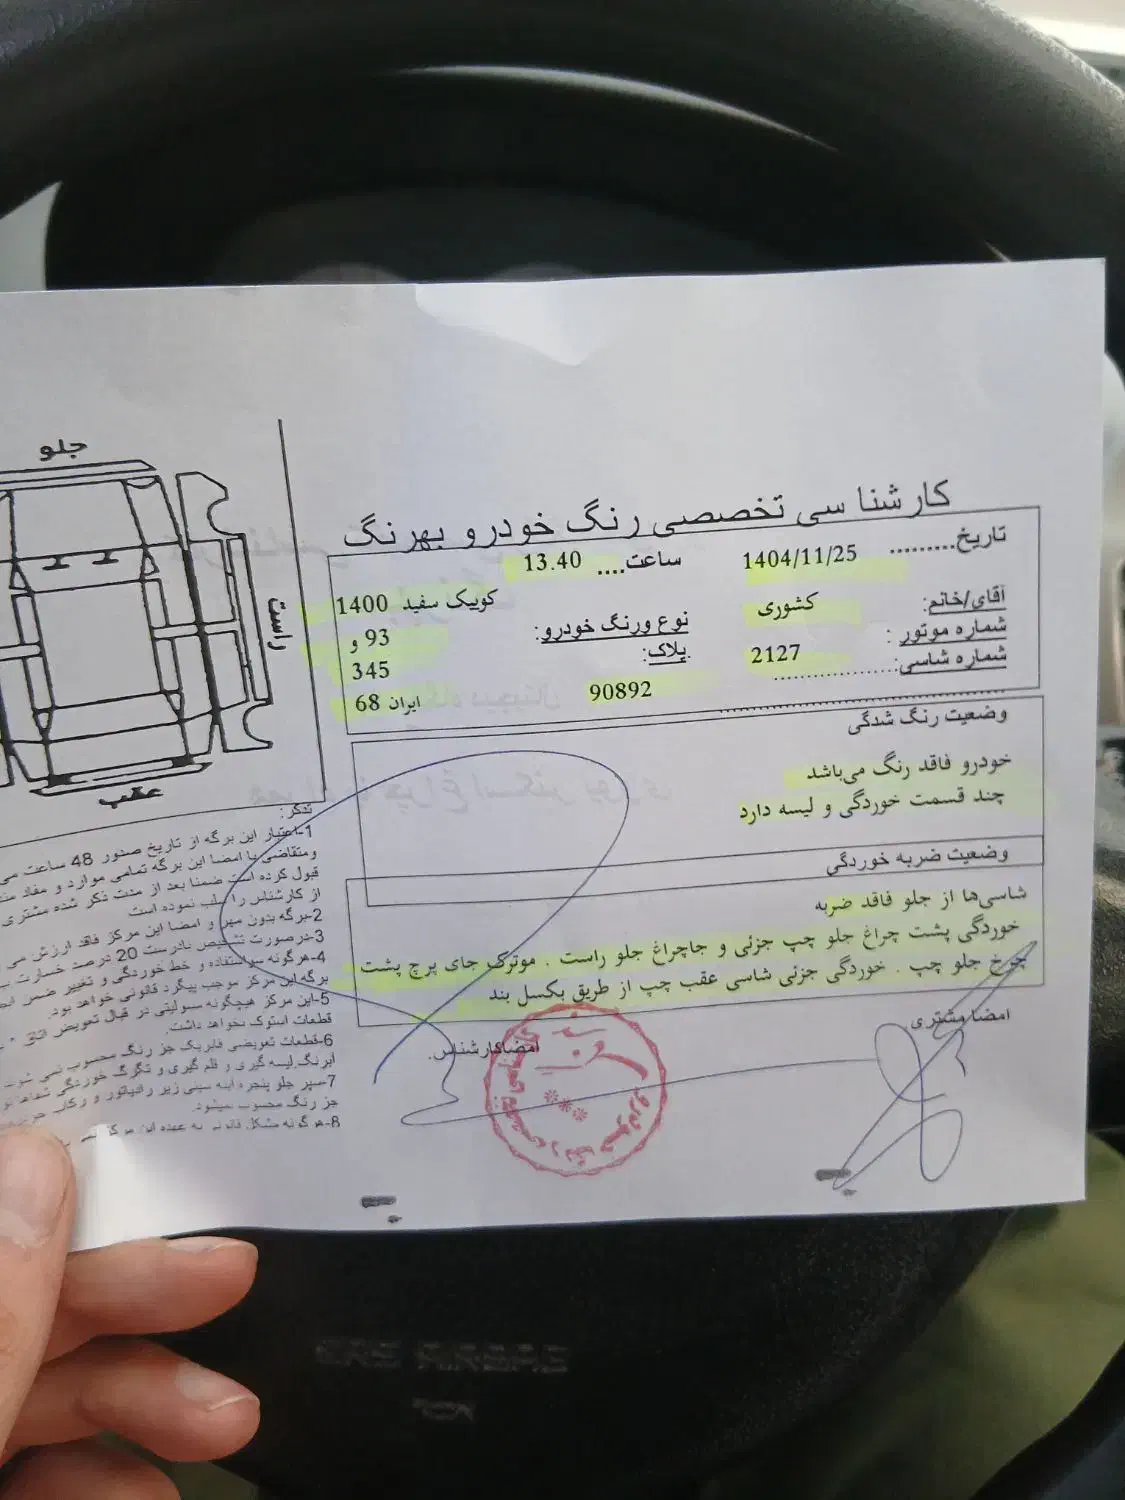 کارشناسی تخصصی رنگ خودرو بهرنگ
تاریخ......... 1404/11/25 ساعت.... 13.40
آقای/خانم: کشوری نوع ورنگ خودرو: کوییک سفید 1400
شماره موتور : 2127 پلاک: 93 و 345 ایران 68
شماره شاسی: 90892
وضعیت رنگ شدگی
خودرو فاقد رنگ می‌باشد
چند قسمت خوردگی و لیسه دارد
وضعیت ضربه خوردگی
شاسی‌ها از جلو فاقد ضربه
خوردگی پشت چراغ جلو چپ جزئی و جاچراغ جلو راست . موترک جای پرچ پشت
چرخ جلو چپ . خوردگی جزئی شاسی عقب چپ از طریق بکسل بند
امضا مشتری
امضاکارشناس.
جلو
راست
عقب
تذکر:
1-اعتبار این برگه از تاریخ صدور 48 ساعت
ومتقاضی با امضا این برگه تمامی موارد و مفاد
قبول کرده است ضمنا بعد از مدت ذکر شده مشتری
از کارشناس را سلب نموده است
2-برگه بدون مهر و امضا این مرکز فاقد ارزش می
3-درصورت تشخیص نادرست 20 درصد خسارت
4-هرگونه سواستفاده و خط خوردگی و تغییر ضمن
برگه این مرکز موجب پیگرد قانونی خواهد بود.
5-این مرکز هیچگونه مسولیتی در قبال تعویض اتاق
قطعات استوک نخواهد داشت.
6-قطعات تعویضی فابریک جز رنگ محسوب نمی
آبرنگ.لیسه گیری و قلم گیری و تگرگ خوردگی
7-سپر جلو پنجره آینه سینی زیر رادیاتور و رکاب
جز رنگ محسوب میشود.
8-هرگونه مشکل قانونی به عهده این مرکز